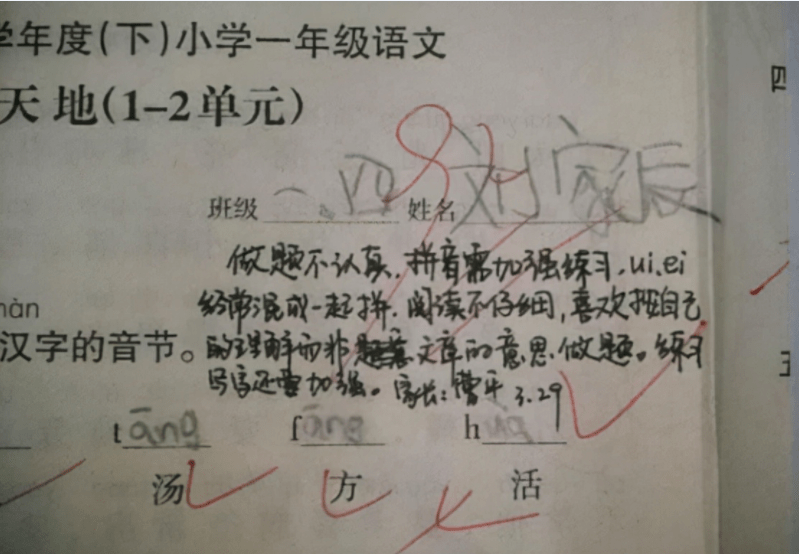 学年度(下)小学一年级语文
天地(1-2单元)
四
82
班级 一.四 姓名 刘家辰
做题不认真，拼音需加强练习，ui.ei
经常混成一起拼，阅读不仔细，喜欢按自己
hàn
的理解而非文章的意思做题。练习
汉字的音节。
写字还需加强。家长：曹平 3.29
五
tāng fāng h
汤 方 活